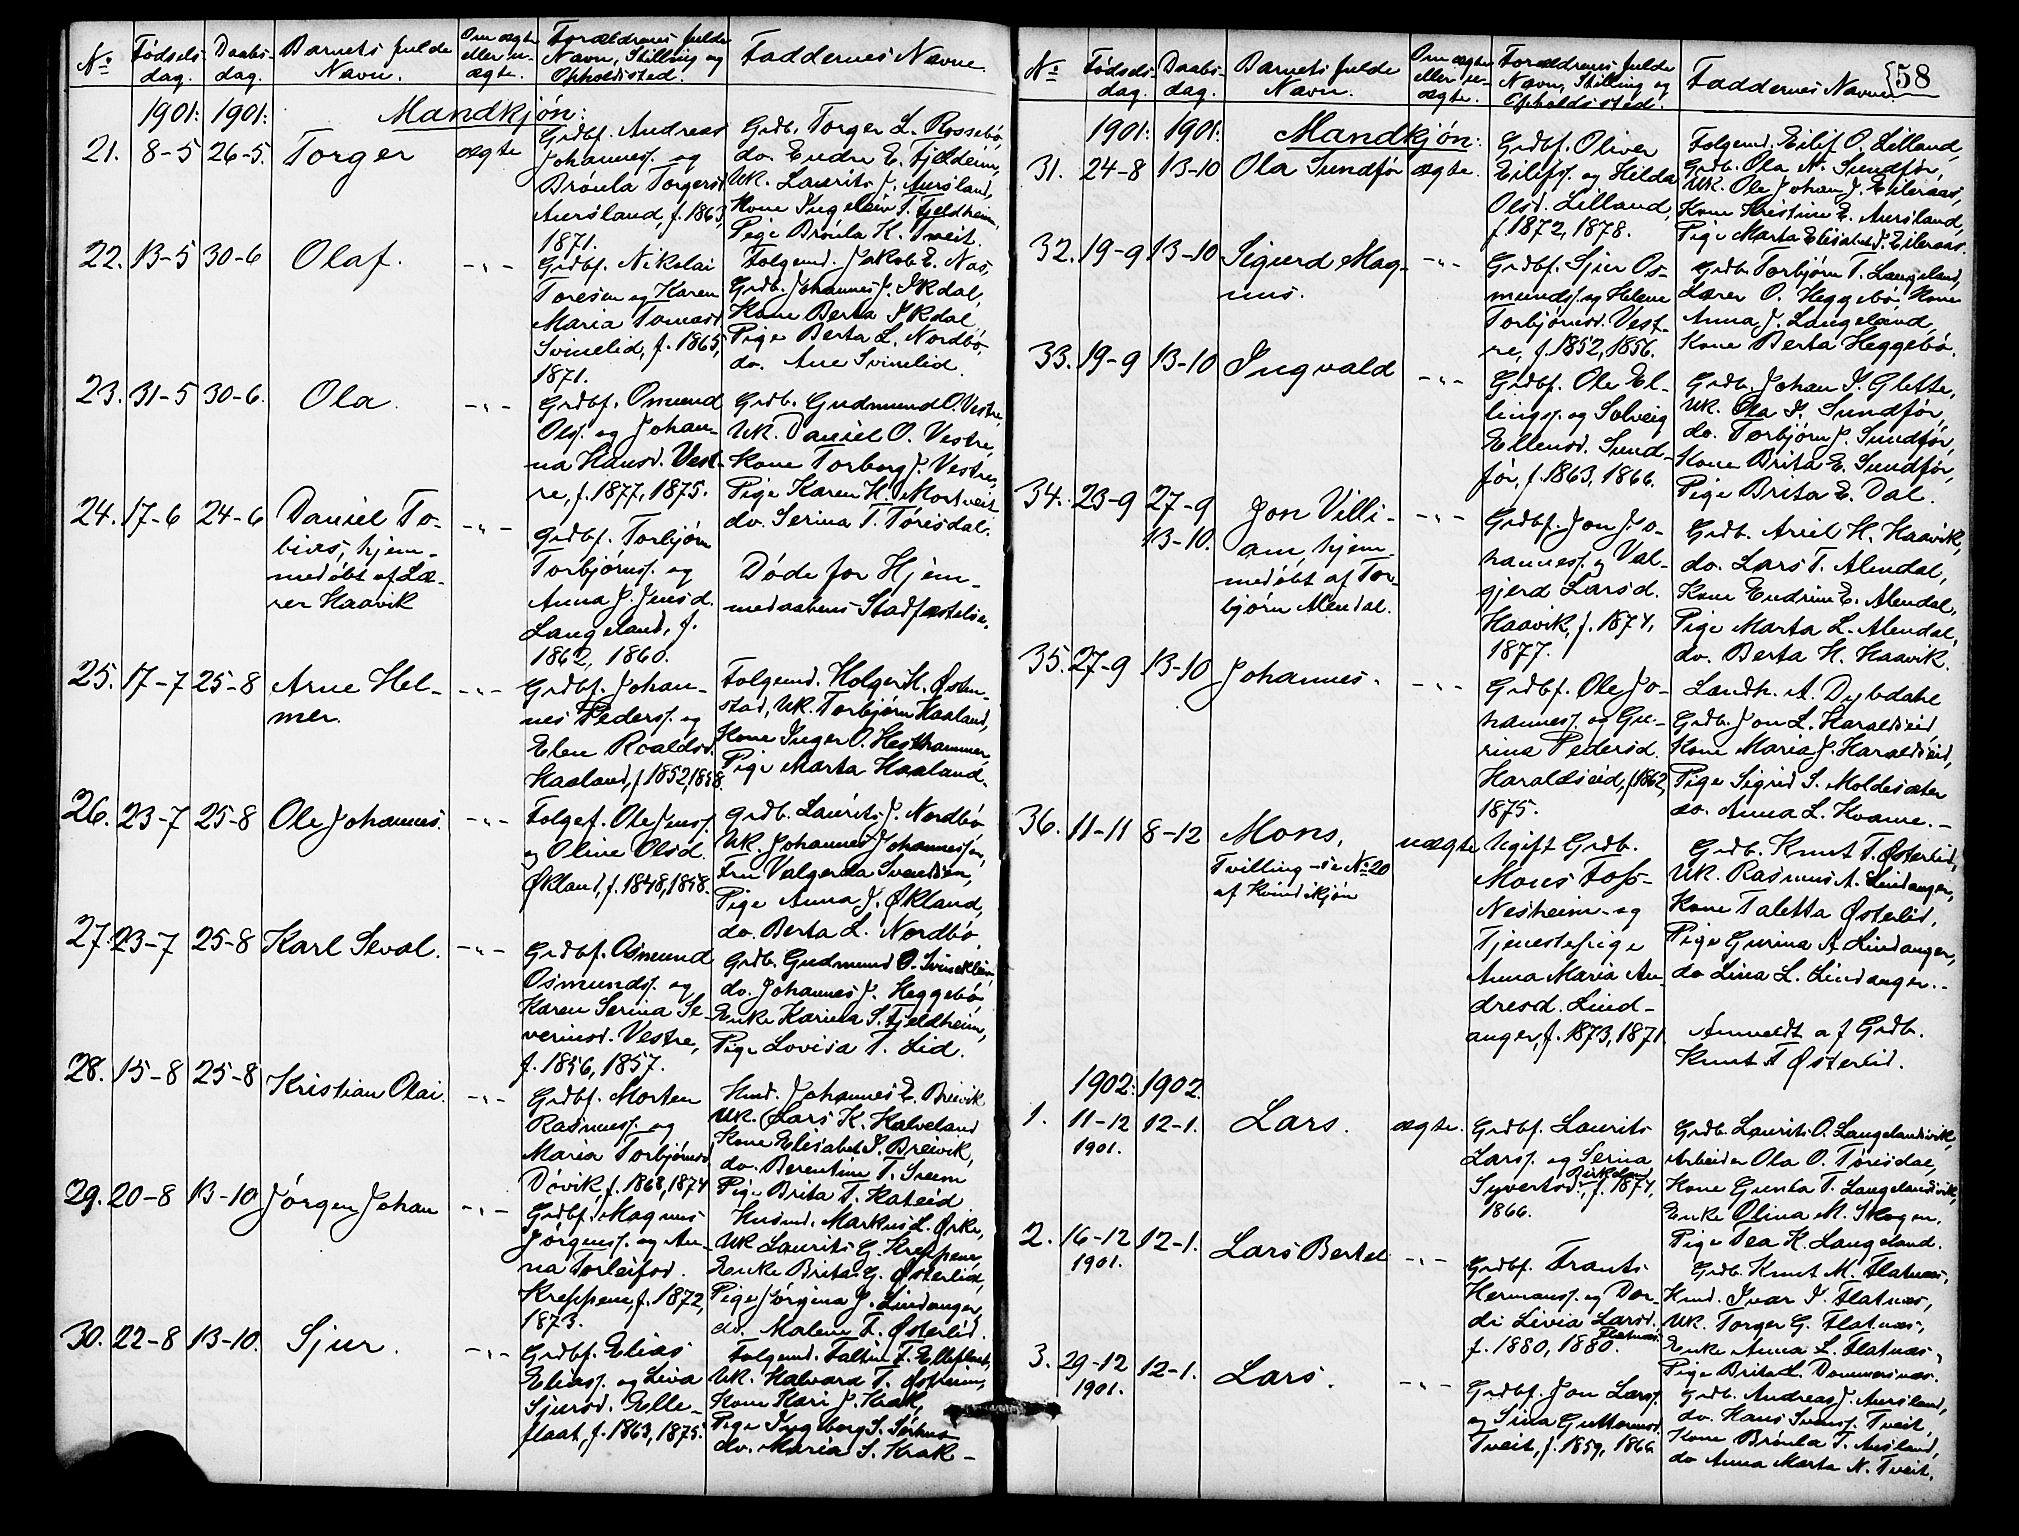 No.
Fødsels-
dag.
Daabs-
dag.
Barnets fulde
Navn.
Om ægte
eller u-
ægte.
Forældrenes fulde
Navn, Stilling og
Opholdssted.
Faddernes Navne.
1901: 1901:
Mandkjøn:
21. 8-5 26-5. Torger ægte
Grdbf. Andreas
Johanness. og
Brønla Torgersd.
Aursland, f. 1863,
1871.
Grdb. Torger L. Rossebø,
do. Endre E. Fjeldheim,
Uk. Laurits J. Aursland,
Kone Ingeleiv T. Fjeldheim,
Pige Brønla H. Tveit.
22. 13-5 30-6 Olaf. -"-
Grdbf. Nikolai
Toresen og Karen
Maria Tomasd.
Svinelid, f. 1865,
1871.
Folgemd. Jakob E. Nas,
Grdb. Johannes J. Ikdal,
Kone Berta Ikdal,
Pige Berta L. Nordbø,
do. Ane Svinelid.
23. 31-5 30-6. Ola. -"-
Grdbf. Osmund
Ols. og Johan-
na Hansd. Vest-
re, f. 1877, 1875.
Grdb. Gudmund O. Vestre,
Uk. Daniel O. Vestre,
Kone Torborg J. Vestre,
Pige Karen H. Mortveit
do. Serina T. Tørisdal.
24. 17-6 24-6 Daniel To-
bias, hjem-
medøbt af Læ-
rer Haavik
-"-
Grdbf. Torbjørn
Torbjørns. og
Anna J. Jensd.
Langeland, f.
1862, 1860.
Døde før Hjem-
medaabens Stadfæstelse.
25. 17-7 25-8 Arne Hel-
mer.
-"-
Grdbf. Johan-
nes Peders. og
Elen Roaldsd.
Haaland, f. 1852, 1858.
Folgemd. Holger H. Østen-
stad, Uk. Torbjørn Haaland,
Kone Inger O. Hesthammer,
Pige Marta Haaland.
26. 23-7 25-8 Ole Johannes. -"-
Folgef. Ole Jens.
og Oline Olsd.
Økland, f. 1848, 1858.
Grdb. Laurits J. Nordbø
Uk. Johannes Johannessen,
Fru Valgerda Svendsen,
Pige Anna J. Økland,
do. Berta L. Nordbø
27. 23-7 25-8 Karl Seval. -"-
Grdbf. Osmund
Osmunds. og
Karen Serina Se-
verinsd. Vestre,
f. 1856, 1857.
Grdb. Gudmund O. Svinelien,
do. Johannes J. Heggebø
Enke Karina S. Fjeldheim,
Pige Lovisa T. Lid.
28. 15-8 25-8 Kristian Olai. -"-
Grdbf. Morten
Rasmuss. og
Maria Torbjørnsd.
Døvik, f. 1868, 1874
Hmd. Johannes E. Breivik
Uk. Lars K. Halveland
Kone Elisabet S. Breivik,
do. Berentine T. Sveen
Pige Brita T. Kateid
29. 20-8 13-10 Jørgen Johan -"-
Grdbf. Magnus
Jørgens. og An-
na Torleifsd.
Kreppene, f. 1872,
1873.
Husmd. Markus L. Ørke,
Uk Laurits G. Kreppene,
Enke Brita G. Østerlid,
Pige Jørgina J. Lindanger,
do. Malene T. Østerlid.
30. 22-8 13-10. Sjur. -"-
Grdbf. Elias
Eliass. og Liva
Sjursd. Elle-
flaat, f. 1863, 1875.
Folgemd. Faltin F. Elleflaat,
Uk. Halvard T. Østrem,
Kone Kari J. Krak,
Pige Ingeborg S. Sørhus
do. Maria S. Krak-
58
No.
Fødsels-
dag.
Daabs-
dag.
Barnets fulde
Navn.
Om ægte
eller u-
ægte.
Forældrenes fulde
Navn, Stilling og
Opholdssted.
Faddernes Navne
1901: 1901:
Mandkjøn:
31. 24-8 13-10 Ola Sundfør ægte.
Grdbf. Oliver
Eilifs. og Hilda
Olsd. Lilland,
f. 1872, 1878.
Folgemd. Eilif O. Lilland,
Grdb. Ola N. Sundfør,
Uk. Ole Johan J. Eileraas,
Kone Kristine E. Aursland,
Pige Marta Elisabet J. Eileraas.
32. 19-9 13-10 Sigurd Mag-
nus.
-"-
Grdbf. Sjur Os-
munds. og Helene
Torbjørnsd. Vest-
re, f. 1852, 1856.
Grdb. Torbjørn T. Langeland,
Lærer O. Heggebø, Kone
Anna J. Langeland,
Kone Berta Heggebø.
33. 19-9 13-10 Ingvald -"-
Grdbf. Ole El-
lings. og Solveig
Ellensd. Sund-
før, f. 1863, 1866.
Grdb. Johan I. Glette,
Uk. Ola I. Sundfør,
do. Torbjørn J. Sundfør,
Kone Brita E. Sundfør,
Pige Brita E. Dal.
34. 23-9 27-9
13-10.
Jon Villi-
am, hjem-
medøbt af Tor-
bjørn Alendal.
-"-
Grdbf. Jon Jo-
hanness. og Val-
gjerd Larsd.
Haavik, f. 1874,
1877.
Grdb. Aviel H. Haavik,
do. Lars T. Alendal,
Kone Endrine E. Alendal,
Pige Marta L. Alendal,
do. Berta H. Haavik.
35. 27-9 13-10 Johannes. -"-
Grdbf. Ole Jo-
hanness. og Gu-
rina Pedersd.
Haraldseid, f. 1862,
1875.
Landh. A. Dybdahl
Grdb. Jon L. Haraldseid
Kone Maria J. Haraldseid,
Pige Sigrid S. Moldesæter
do. Anna L. Kvame.-
36. 11-11 8-12 Mons,
Tvilling - se No. 20
af Kvindekjøn
uægte
Ugift Grdb.
Mons Foss-
Nesheim og
Tjenestepige
Anna Maria An-
dresd. Lind-
anger, f. 1873, 1871.
Grdb. Knut T. Østerlid,
Uk. Rasmus A. Lindanger,
Kone Taletta Østerlid,
Pige Gurina A. Lindanger,
do Lina L. Lindanger.-
Anmeldt af Grdb.
Knut T. Østerlid.
1902: 1902.
1. 11-12
1901.
12-1. Lars. ægte.
Grdbf. Laurits
Larss. og Serina
Syvertsd. Birkeland, f. 1874,
1866.
Grdb. Laurits O. Langelandsvik,
Arbeider Ola O. Tørisdal,
Kone Gunla T. Langelandsvik,
Enke Olina M. Skogen,
Pige Tea K. Langeland.
2. 16-12
1901.
12-1. Lars Bertel -"-
Grdbf. Frants
Hermanss. og Dor-
di Livia Larsd.
Flatnæs.
f. 1880, 1880.
Grdb. Knut M. Flatnæs,
Hmd. Ivar I. Flatnæs,
Uk. Torger G. Flatnæs,
Enke Anna L. Flatnæs,
Pige Brita L. Dommersnæs.
3. 29-12
1901.
12-1. Lars. -"-
Grdbf. Jon Larss.
og Sina Guttormsd.
Tveit, f. 1859, 1866
Grdb. Andreas J. Aursland,
do. Hans Svens. Tveit,
Kone Brønla T. Ausland,
do Anna Marta N. Tveit.